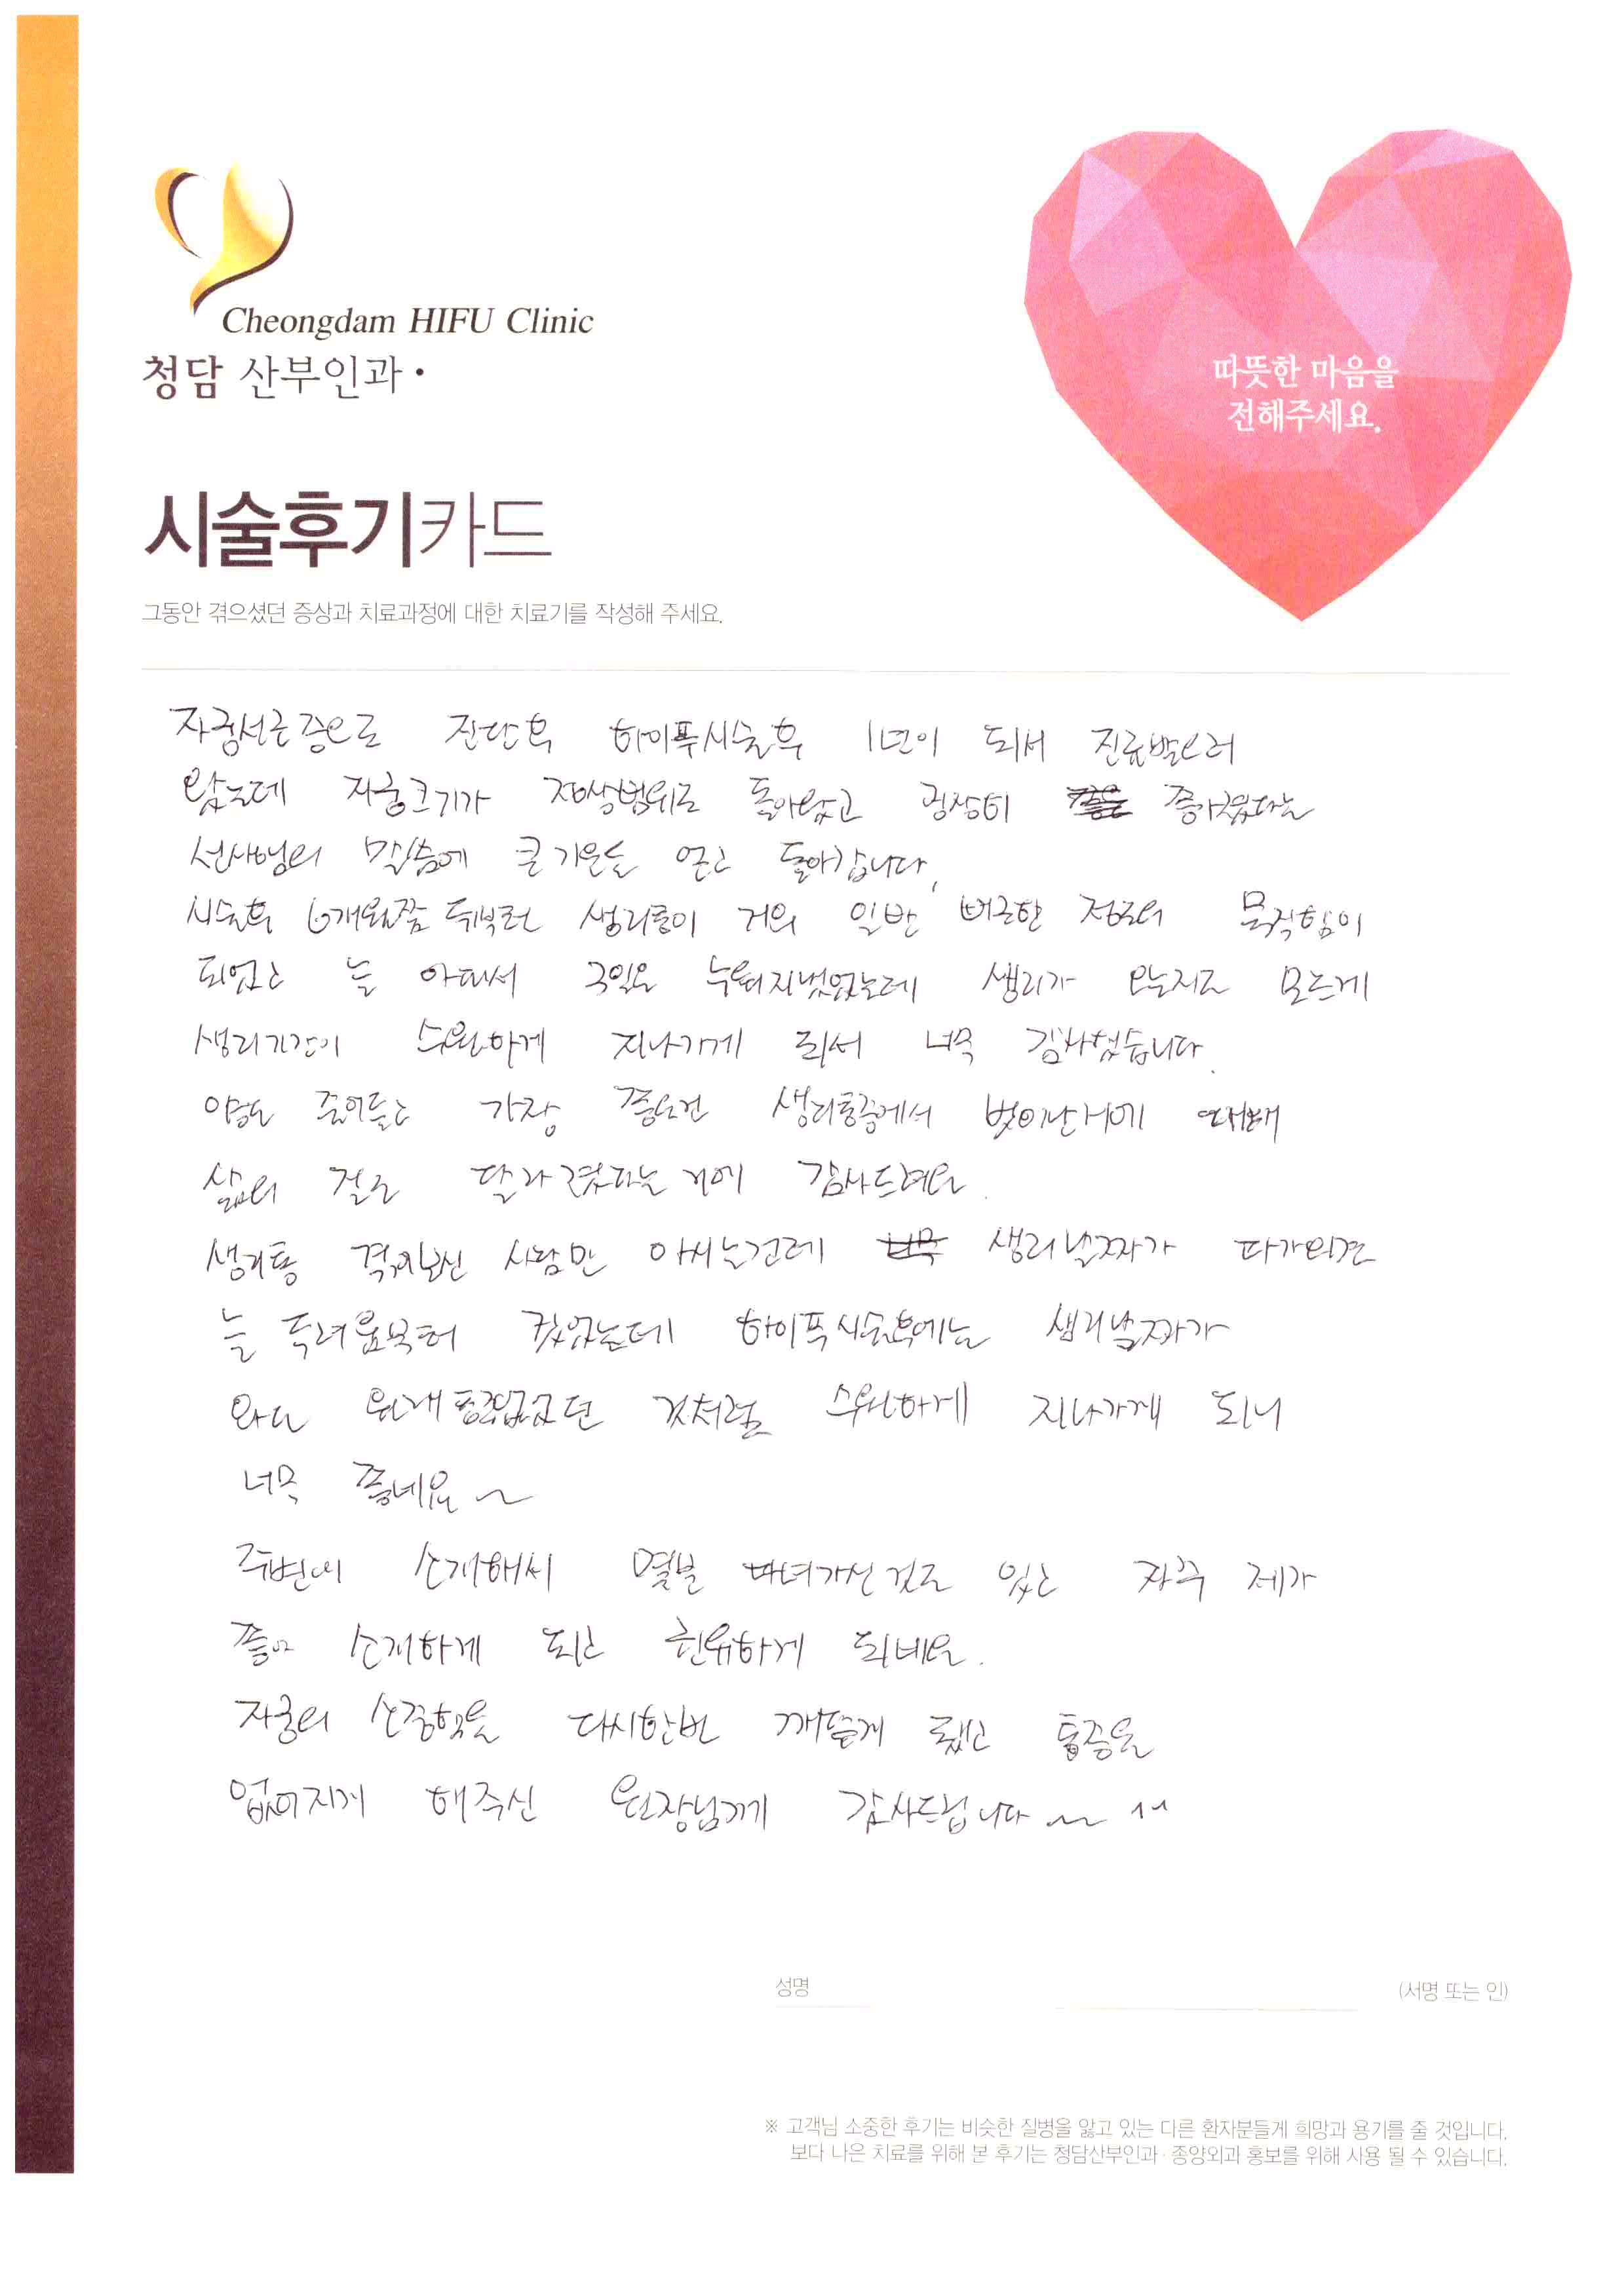 Cheongdam HIFU Clinic
청담 산부인과·
따뜻한 마음을
전해주세요.
시술후기카드
그동안 겪으셨던 증상과 치료과정에 대한 치료기를 작성해 주세요.
자궁선근증으로 진단후 하이푸시술후 1년이 되서 진료받으러
왔는데 자궁크기가 정상범위로 돌아왔고 굉장히 좋아졌다는
선생님의 말씀에 큰 기운을 얻고 돌아갑니다.
시술후 6개월쯤 뒤부턴 생리통이 거의 일반 뻐근한 정도의 묵직함이
되었고 늘 아파서 3일은 누워지냈었는데 생리가 왔는지도 모르게
생리기간이 수월하게 지나가게 되서 너무 감사했습니다.
양도 줄어들고 가장 좋은건 생리통증에서 벗어난거에 대해
삶의 질도 달라졌다는 거에 감사드려요.
생리통 겪어보신 사람만 아시는건데 생리날짜가 다가오면
늘 두려움부터 컸었는데 하이푸시술후에는 생리날짜가
와도 원래 통증없었던 것처럼 수월하게 지나가게 되니
너무 좋네요~
주변에 소개해서 몇분 다녀가신 것도 있고 자꾸 제가
좋아 소개하게 되고 권유하게 되네요.
자궁의 소중함을 다시한번 깨닫게 됐고 통증을
없어지게 해주신 원장님께 감사드립니다~ ^^
성명
(서명 또는 인)
※ 고객님 소중한 후기는 비슷한 질병을 앓고 있는 다른 환자분들게 희망과 용기를 줄 것입니다.
보다 나은 치료를 위해 본 후기는 청담산부인과·종양외과 홍보를 위해 사용 될 수 있습니다.